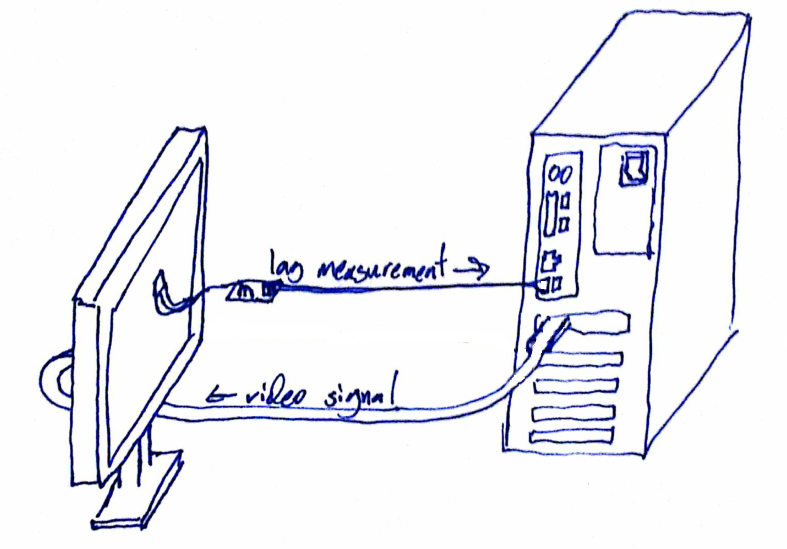 lag measurement →
← video signal